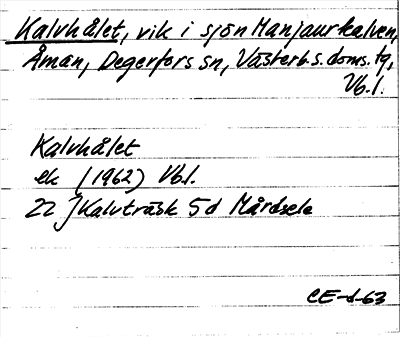 Kalvhålet, vik i sjön Manjaurkalven,
Åman, Degerfors sn, Västerb.s.doms.tg,
Vb.l.
Kalvhålet
ek (1962) Vb.l.
22 J Kalvträsk 5d Mårdsele
CE-d-63